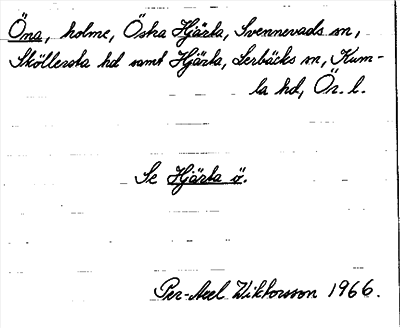 Öna, holme, Östra Hjärta, Svennevads sn,
Sköllersta hd samt Hjärta, Lerbäcks sn, Kum-
la hd, Ör. l.
Se Hjärta ö.
Per-Axel Wiktorsson 1966.